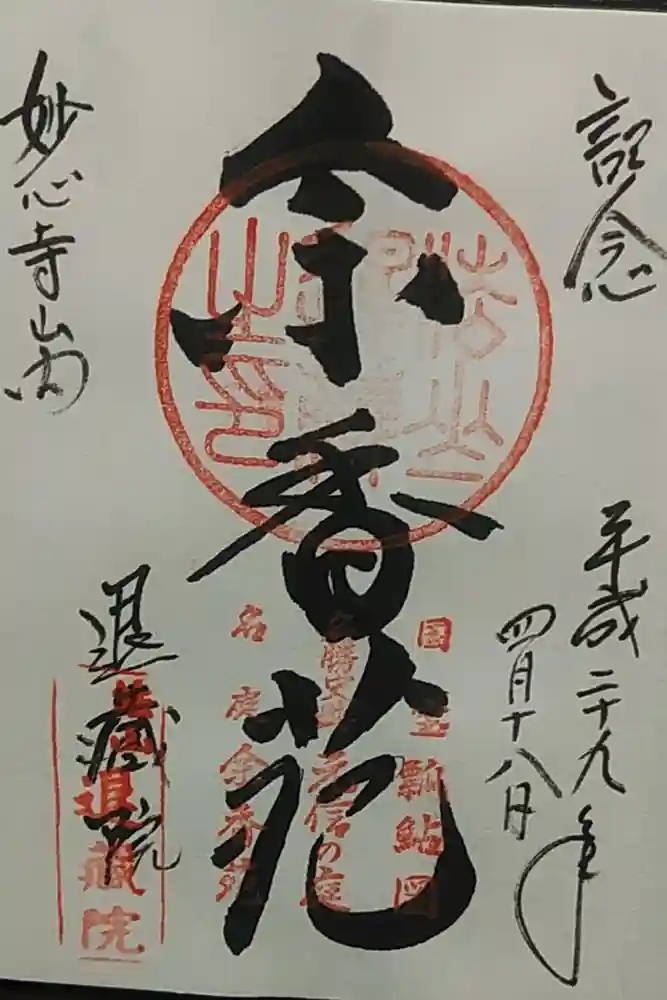 記念
平成二十九年
四月十八日
余香苑
国宝瓢鮎図
名勝史蹟元信の庭
名庭余香苑
妙心寺山内
退蔵院
退蔵院